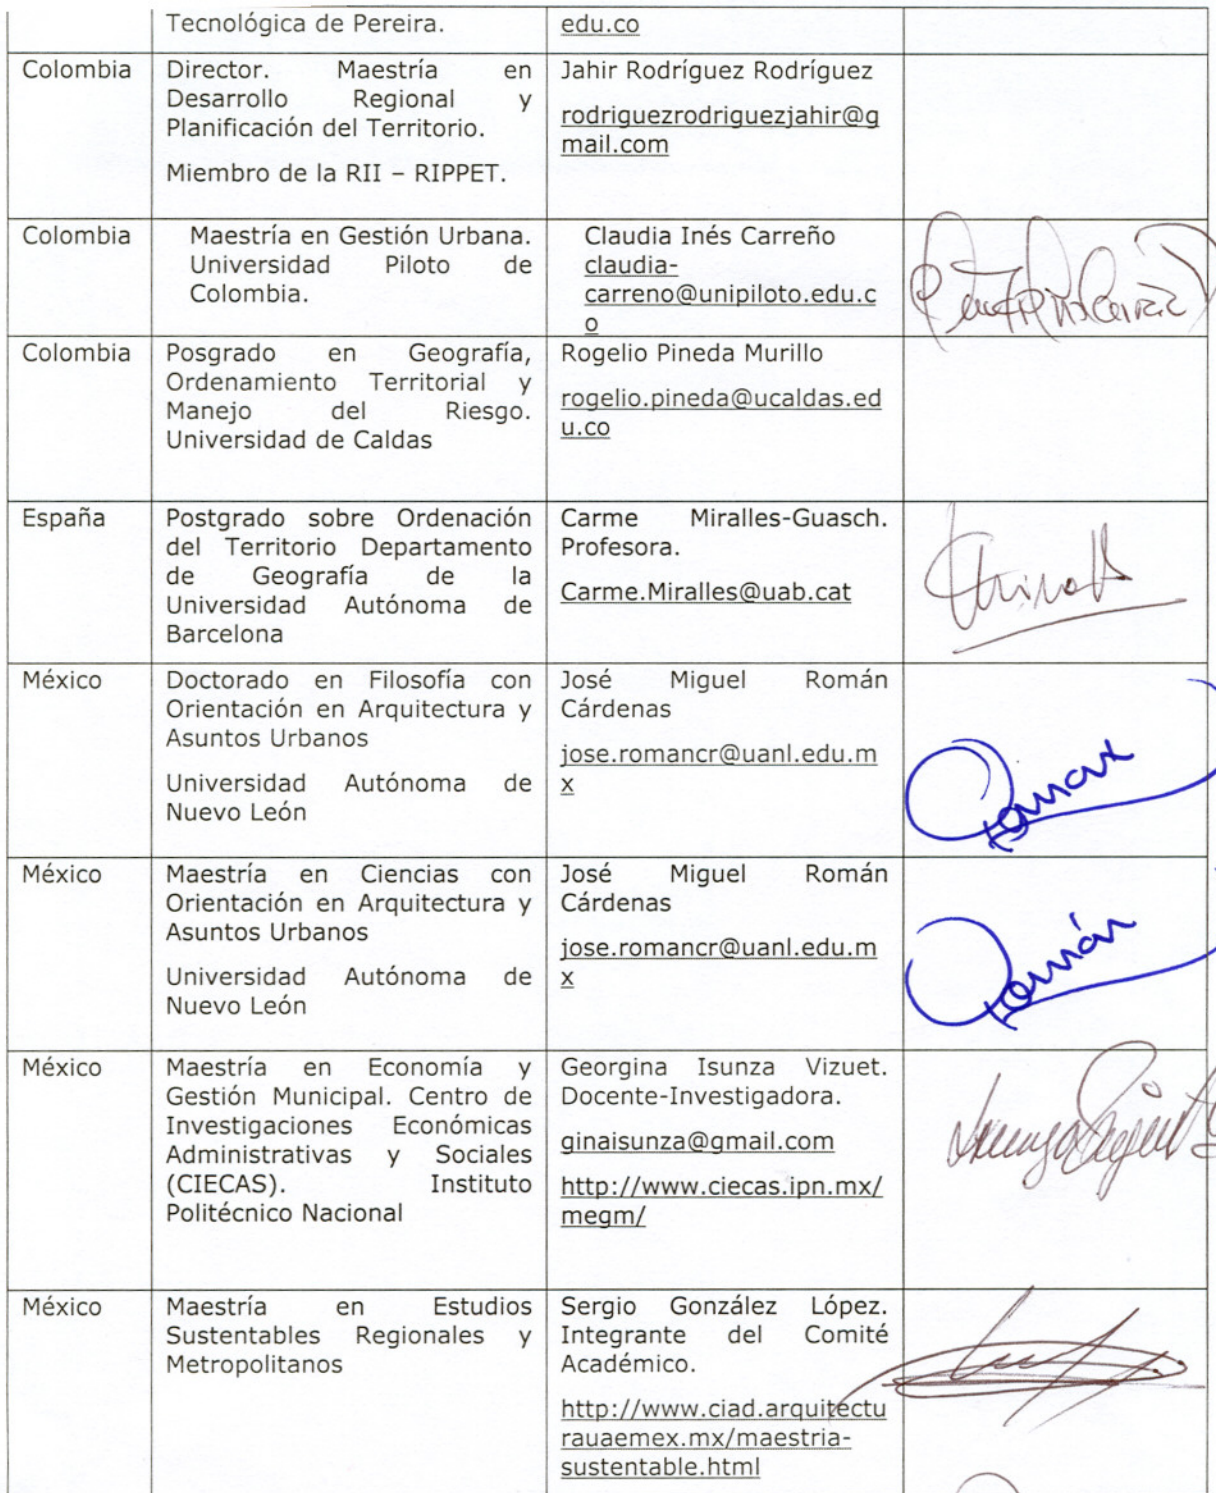 Tecnológica de Pereira.
edu.co
Colombia
Director. Maestría en
Desarrollo Regional y
Planificación del Territorio.
Miembro de la RII – RIPPET.
Jahir Rodríguez Rodríguez
rodriguezrodriguezjahir@g
mail.com
Colombia
Maestría en Gestión Urbana.
Universidad Piloto de
Colombia.
Claudia Inés Carreño
claudia-
carreno@unipiloto.edu.c
o
Colombia
Posgrado en Geografía,
Ordenamiento Territorial y
Manejo del Riesgo.
Universidad de Caldas
Rogelio Pineda Murillo
rogelio.pineda@ucaldas.ed
u.co
España
Postgrado sobre Ordenación
del Territorio Departamento
de Geografía de la
Universidad Autónoma de
Barcelona
Carme Miralles-Guasch.
Profesora.
Carme.Miralles@uab.cat
México
Doctorado en Filosofía con
Orientación en Arquitectura y
Asuntos Urbanos
Universidad Autónoma de
Nuevo León
José Miguel Román
Cárdenas
jose.romancr@uanl.edu.m
x
México
Maestría en Ciencias con
Orientación en Arquitectura y
Asuntos Urbanos
Universidad Autónoma de
Nuevo León
José Miguel Román
Cárdenas
jose.romancr@uanl.edu.m
x
Román
México
Maestría en Economía y
Gestión Municipal. Centro de
Investigaciones Económicas
Administrativas y Sociales
(CIECAS). Instituto
Politécnico Nacional
Georgina Isunza Vizuet.
Docente-Investigadora.
ginaisunza@gmail.com
http://www.ciecas.ipn.mx/
megm/
México
Maestría en Estudios
Sustentables Regionales y
Metropolitanos
Sergio González López.
Integrante del Comité
Académico.
http://www.ciad.arquitectu
rauaemex.mx/maestria-
sustentable.html